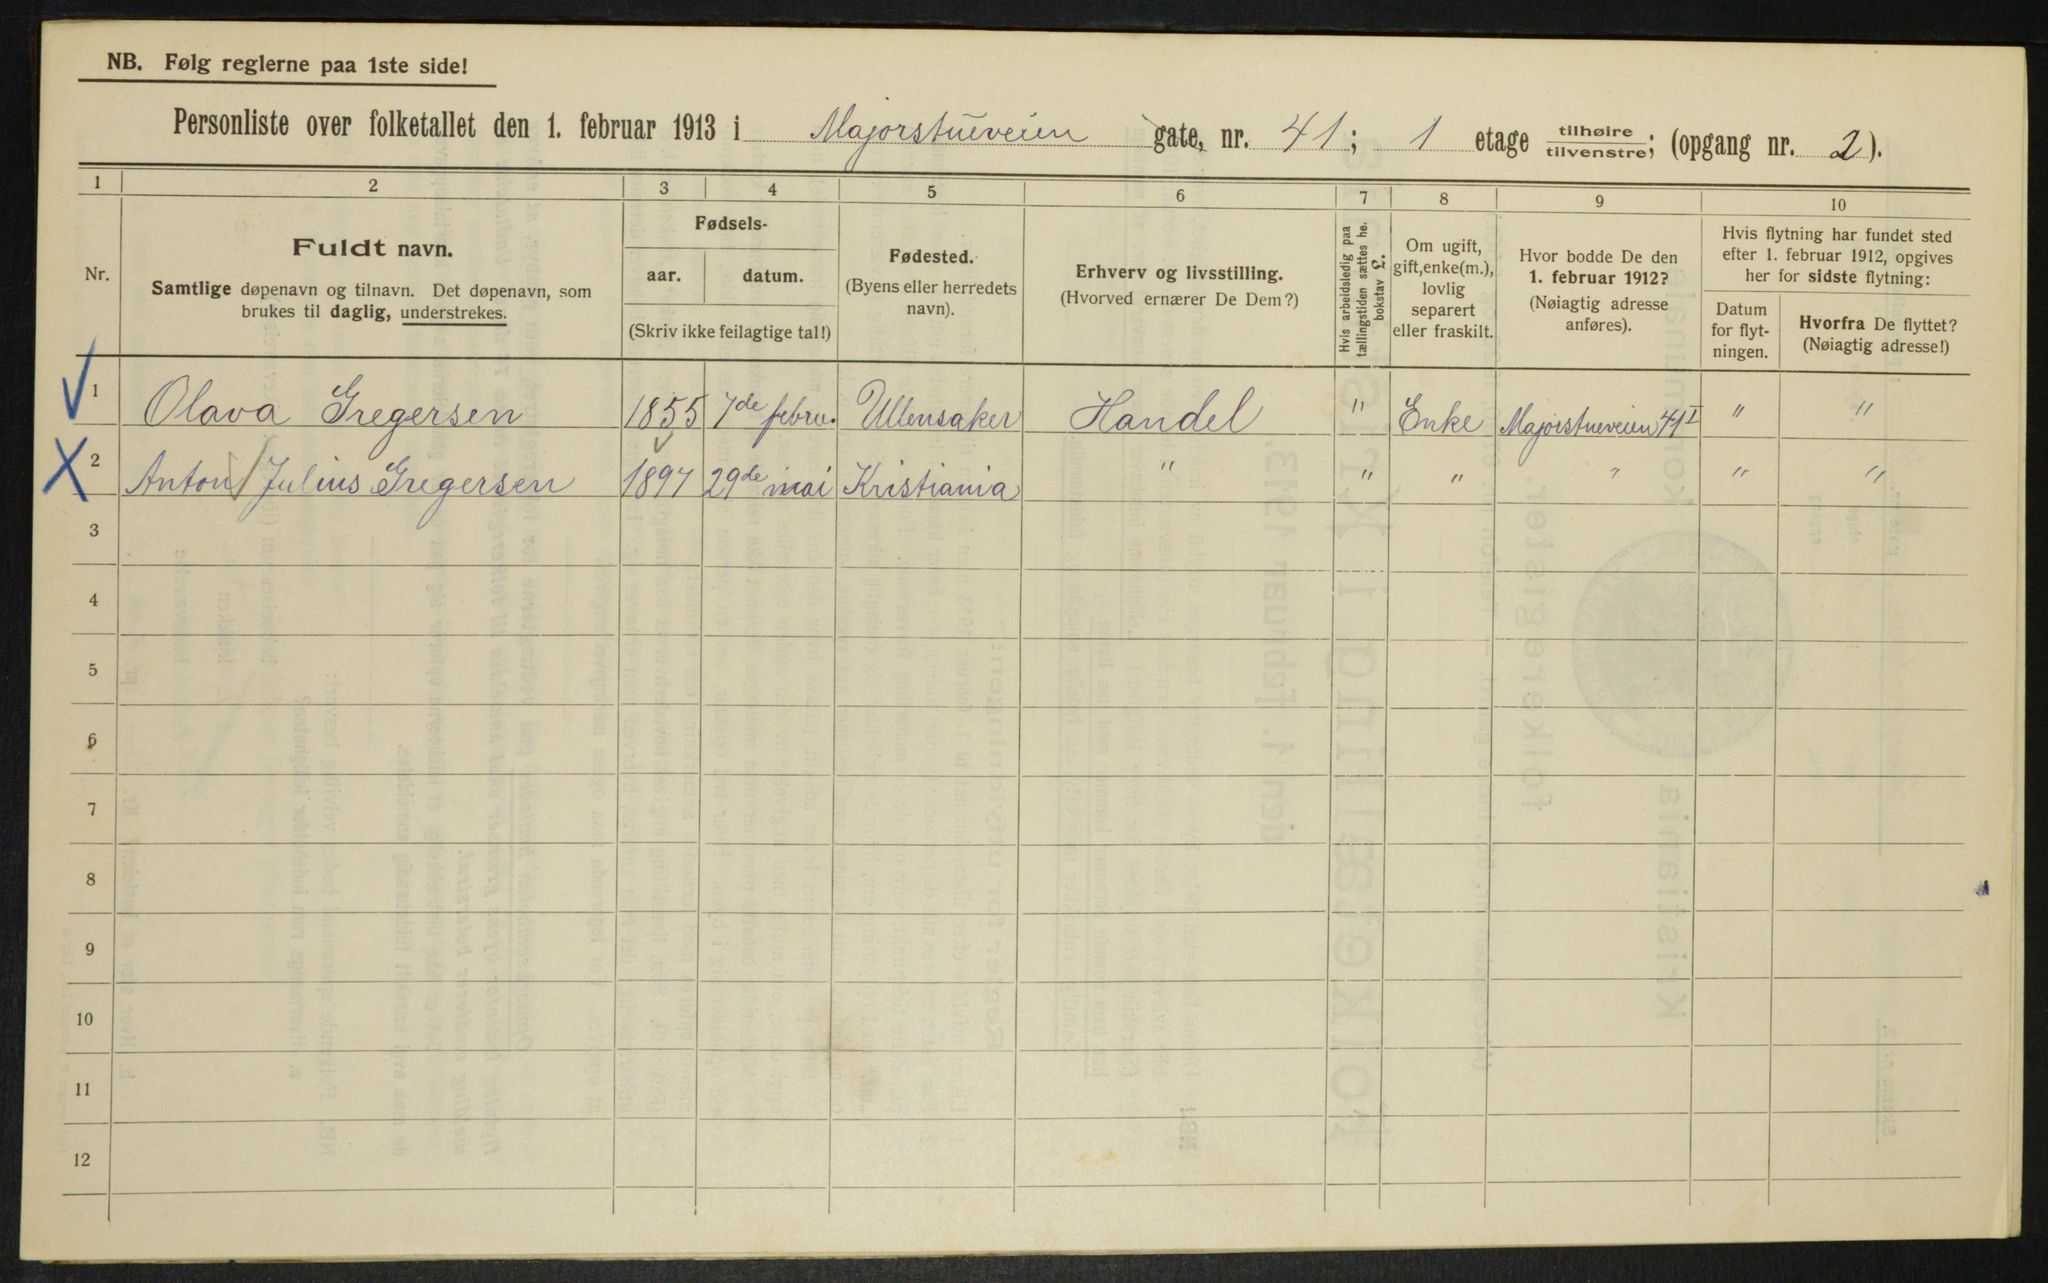 NB. Følg reglerne paa 1ste side!
Personliste over folketallet den 1. februar 1913 i Majorstueveien gate, nr. 41; 1 etage tilhøire/tilvenstre; (opgang nr. 2).
1 2 3 4 5 6 7 8 9 10
Nr.
Fuldt navn.
Samtlige døpenavn og tilnavn. Det døpenavn, som
brukes til daglig, understrekes.
Fødsels-
aar. datum.
(Skriv ikke feilagtige tal!)
Fødested.
(Byens eller herredets
navn).
Erhverv og livsstilling.
(Hvorved ernærer De Dem?)
Hvis arbeidsledig paa
tællingstiden sættes he.
bokstav L.
Om ugift,
gift, enke(m.),
lovlig
separert
eller fraskilt.
Hvor bodde De den
1. februar 1912?
(Nøiagtig adresse
anføres).
Hvis flytning har fundet sted
efter 1. februar 1912, opgives
her for sidste flytning:
Datum
for flyt-
ningen.
Hvorfra De flyttet?
(Nøiagtig adresse!)
1 Olava Gregersen 1855 7de febru. Ullensaker Handel " Enke Majorstueveien 41 I " "
2 Anton Julius Gregersen 1897 29de mai Kristiania " " " " " "
3
4
5
6
7
8
9
10
11
12